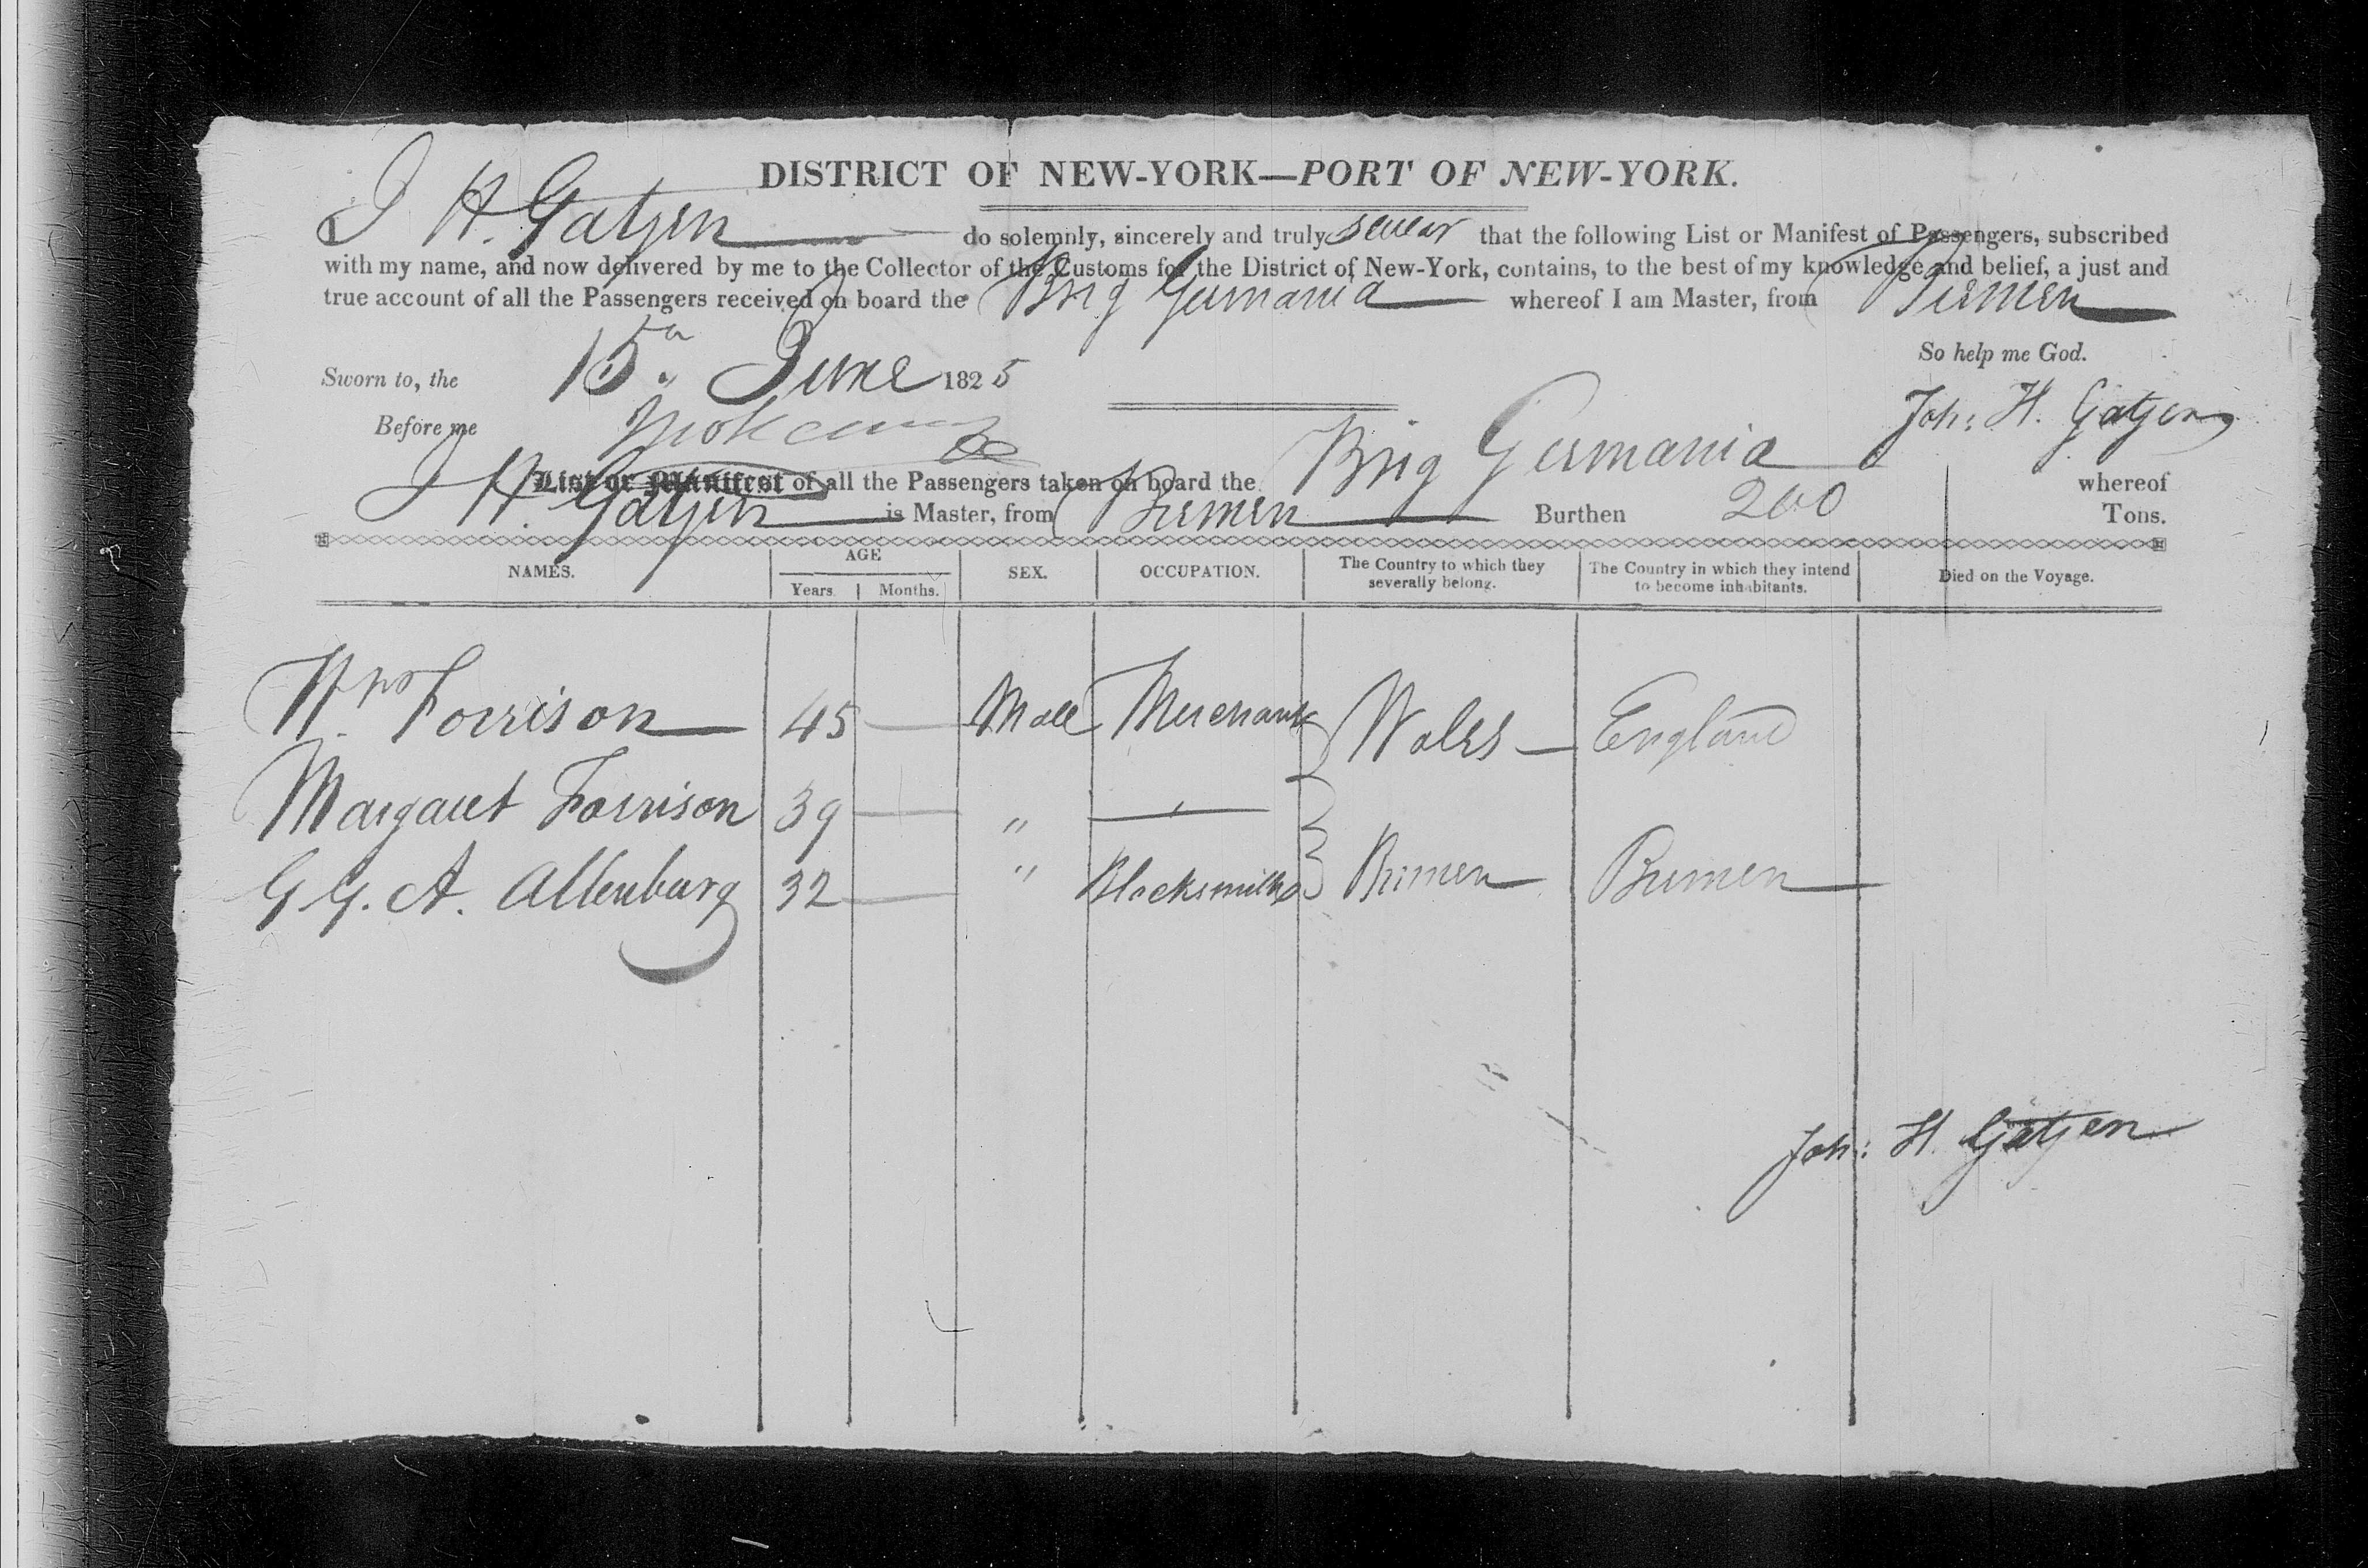 DISTRICT OF NEW-YORK—PORT OF NEW-YORK.
I H. Gatjen do solemnly, sincerely and truly swear that the following List or Manifest of Passengers, subscribed
with my name, and now delivered by me to the Collector of the Customs for the District of New-York, contains, to the best of my knowledge and belief, a just and
true account of all the Passengers received on board the Brig Germania whereof I am Master, from Bremen
So help me God.
Sworn to, the 15th June 1825
Joh: H. Gatjen
Before me
List or Manifest of all the Passengers taken on board the Brig Germania whereof
J H. Gatjen is Master, from Bremen Burthen 200 Tons.
NAMES. AGE SEX. OCCUPATION. The Country to which they severally belong. The Country in which they intend to become inhabitants. Died on the Voyage.
Years. Months.
Wm Forrison 45 — Male Merchant Wales — England
Margaret Forrison 39 — " —
G G. A. Altenburg 32 — " Blacksmith Bremen Bremen
Joh: H. Gatjen